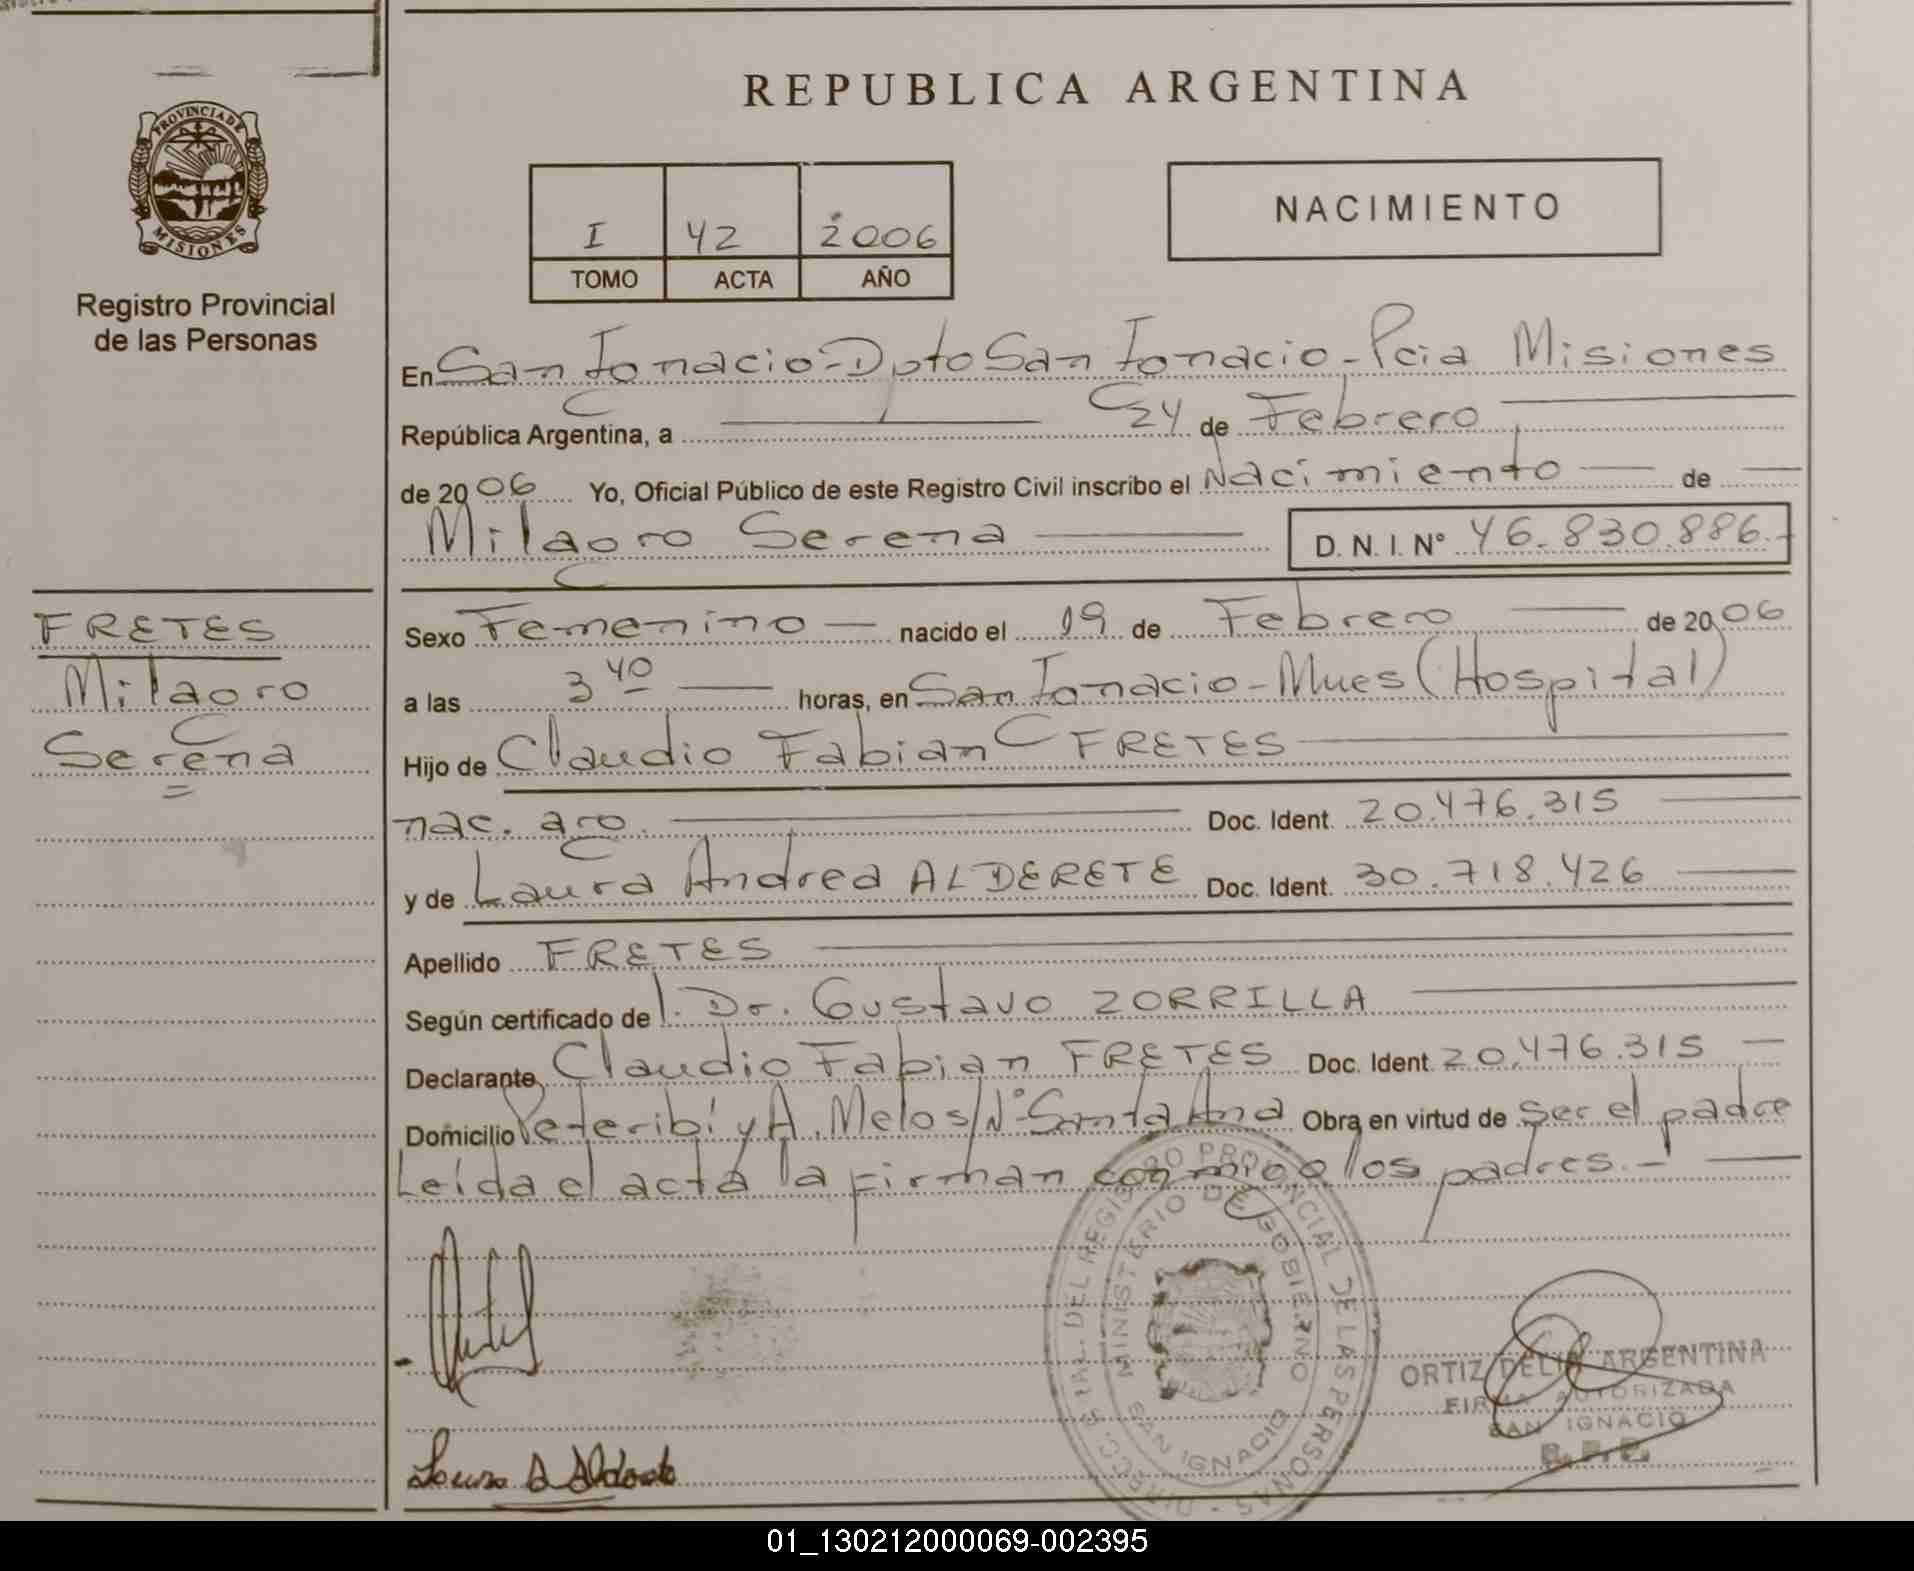 PROVINCIA DE
MISIONES
Registro Provincial
de las Personas
FRETES
Milagro
Serena
REPUBLICA ARGENTINA
I 42 2006
TOMO ACTA AÑO
NACIMIENTO
En San Ignacio - Dpto San Ignacio - Pcia Misiones
República Argentina, a 24 de Febrero
de 2006 Yo, Oficial Público de este Registro Civil inscribo el Nacimiento de
Milagro Serena D. N. I. Nº 46.830.886.-
Sexo Femenino nacido el 19 de Febrero de 2006
a las 3 40 horas, en San Ignacio - Mnes (Hospital)
Hijo de Claudio Fabian FRETES
nac. arg. Doc. Ident. 20.476.315
y de Laura Andrea ALDERETE Doc. Ident. 30.718.426
Apellido FRETES
Según certificado de l. Dr. Gustavo ZORRILLA
Declarante Claudio Fabian FRETES Doc. Ident. 20.476.315
Domicilio Peteribí y A. Melo s/Nº Santa Ana Obra en virtud de ser el padre
Leída el acta la firman conmigo los padres.-
DIRECC. GRAL. DEL REGISTRO PROVINCIAL DE LAS PERSONAS -
MINISTERIO DE GOBIERNO
SAN IGNACIO
ORTIZ DELIA ARGENTINA
FIRMA AUTORIZADA
SAN IGNACIO
Laura A Alderete
01_130212000069-002395